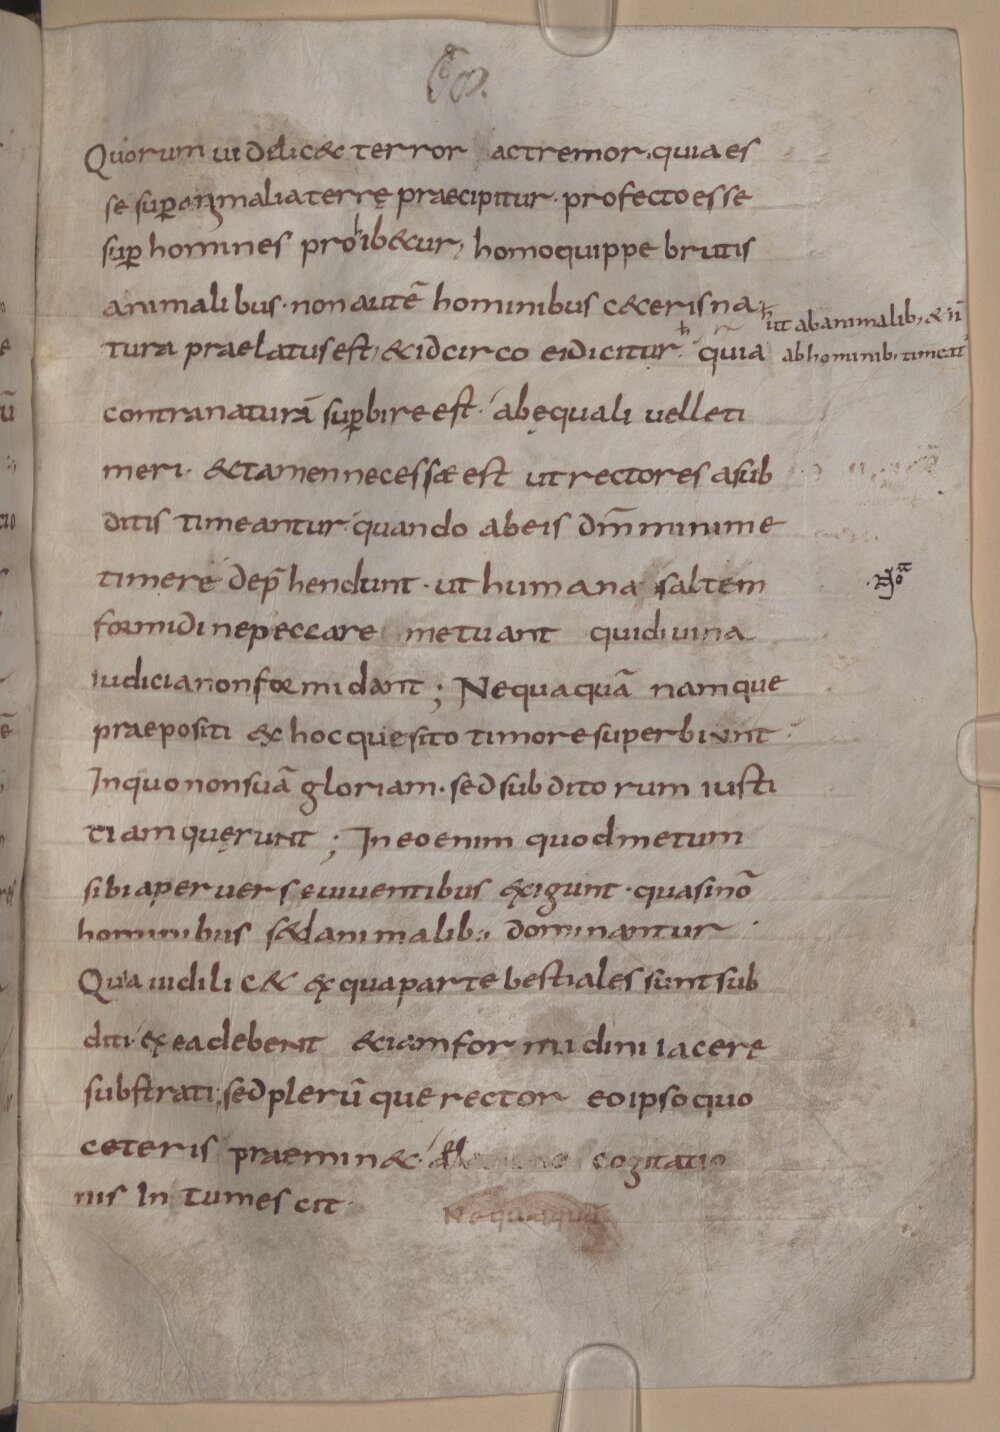 Quorum uidelic& terror ac tremor. quia es
se sup̄ animalia terrę praecipitur. profecto esse
sup̄ homines prohib&ur, homo quippe brutis
animalibus. non autē hominibus c&eris na
tura praelatus est, & idcirco ei dicitur. quia
ut ab animalib; & ñ
ab hominib; timeat᷑
contra naturā sup̄bire est. ab ęquali uelle ti
meri. & tamen necessae est ut rectores a sub
ditis timeantur. quando ab eis dm̄ minime
timere dep̄hendunt. ut humana saltem
formidine peccare metuant qui diuina
iudicia non formidant; Nequaquā namque
praepositi ex hoc quesito timore superbiunt.
In quo non suā gloriam. sed subditorum iusti
tiam quęrunt; In eo enim quod metum
sibi a peruerse uiuentibus exigunt. quasi nō
hominibus s&d animalib; dominantur.
Quia uidilic& ex qua parte bestiales sunt sub
diti. ex ea debent &iam formidini iacere
substrati; sed plerūque rector eo ipso quo
ceteris praemin&. cogitatio
nis Intumescit.
Nequaquā